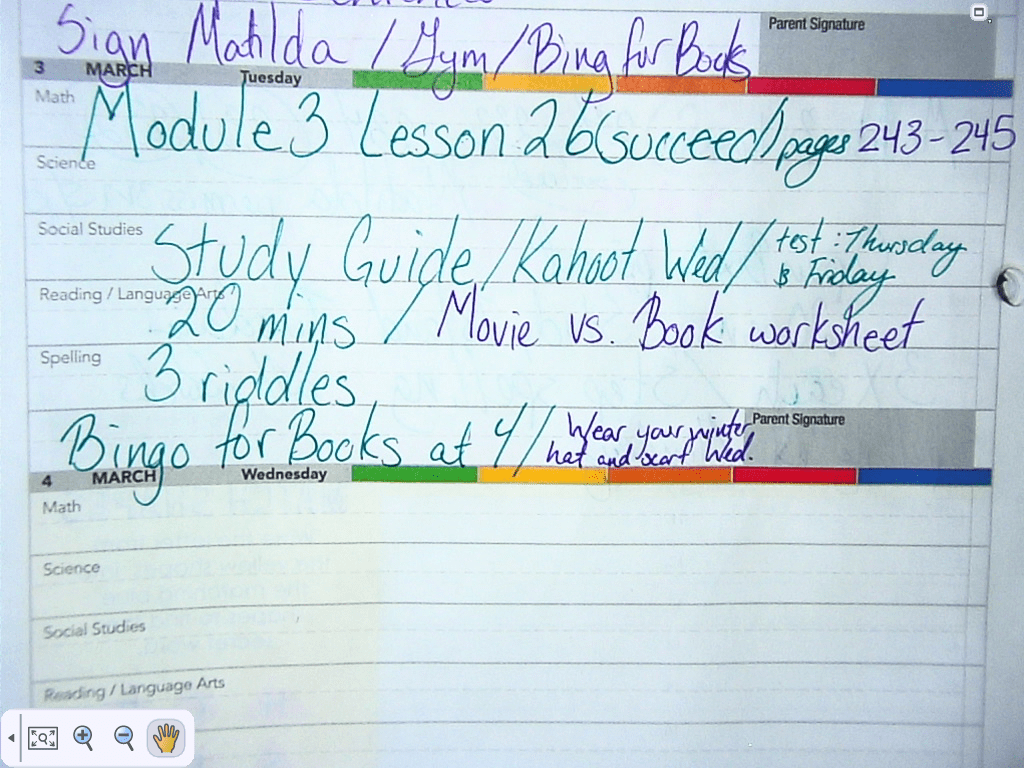 Sign Matilda / Gym / Bing for Books
Parent Signature
3 MARCH Tuesday
Math
Module 3 Lesson 26 (succeed) pages 243-245
Science
Social Studies
Study Guide / Kahoot Wed / test: Thursday
& Friday
Reading / Language Arts
20 mins / Movie vs. Book worksheet
Spelling
3 riddles
Bingo for Books at 4 / Wear your winter
hat and scarf Wed.
Parent Signature
4 MARCH Wednesday
Math
Science
Social Studies
Reading / Language Arts